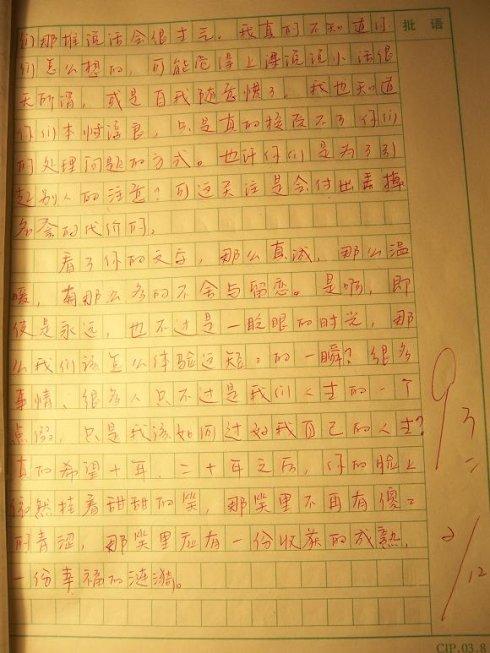 们那堆说话会很生气，我真的不知道你 批语
们怎么想的，可能觉得上课说说小话很
无所谓，或是自我随意惯了。我也知道
你们本性淳良，只是真的接受不了你们
的处理问题的方式。也许你们是为了引
起别人的注意？可这关注是会付出丢掉
名
的代价的。
看了你的文字，那么真诚，那么温
暖，有那么多的不舍与留恋。是啊，即
使是永远，也不过是一眨眼的时光，那
么我们该怎么体验这短短的一瞬？很多
事情、很多人只不过是我们人生的一个
点缀，只是我该如何过好我自己的人生？
真的希望十年、二十年之后，你的脸上
依然挂着甜甜的笑，那笑里不再有傻傻
的青涩，那笑里应有一份收获的成熟，
一份幸福的涟漪。
93
2/12
CIP.03.8